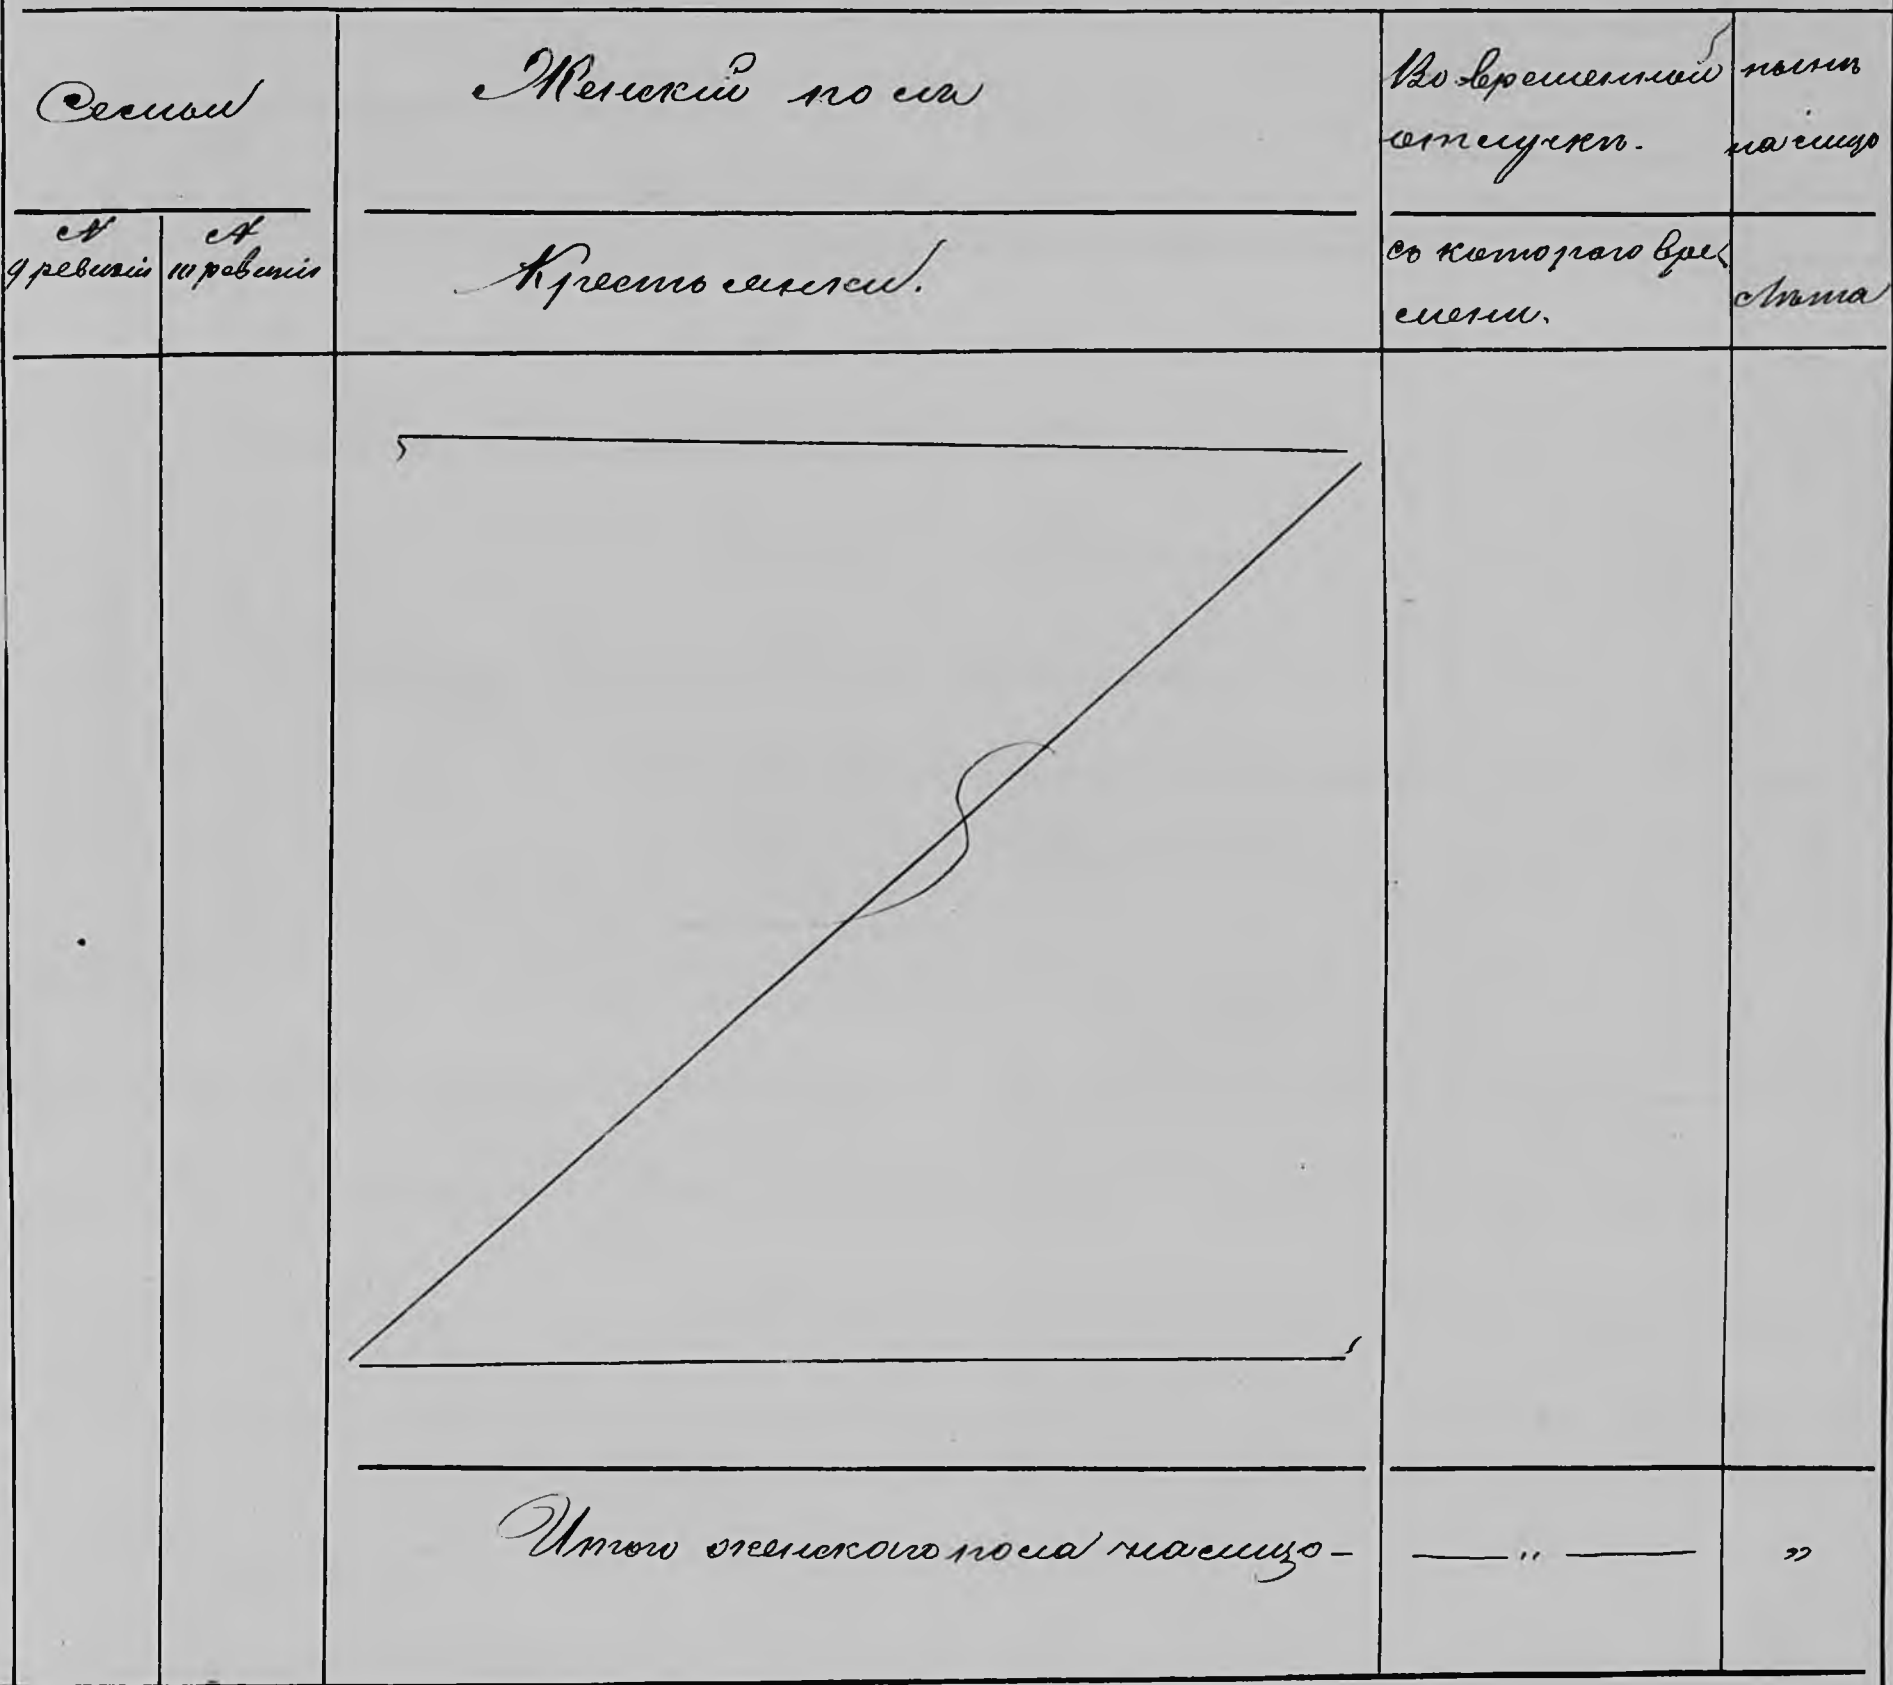 Семьи
Женскій полъ
Во временной
отлучкѣ.
нынѣ
на лицо
№
9 ревизіи
№
10 ревизіи
Крестьянки.
съ котораго вре-
мени.
Лѣта
Итого женскаго пола налицо - — „ — „